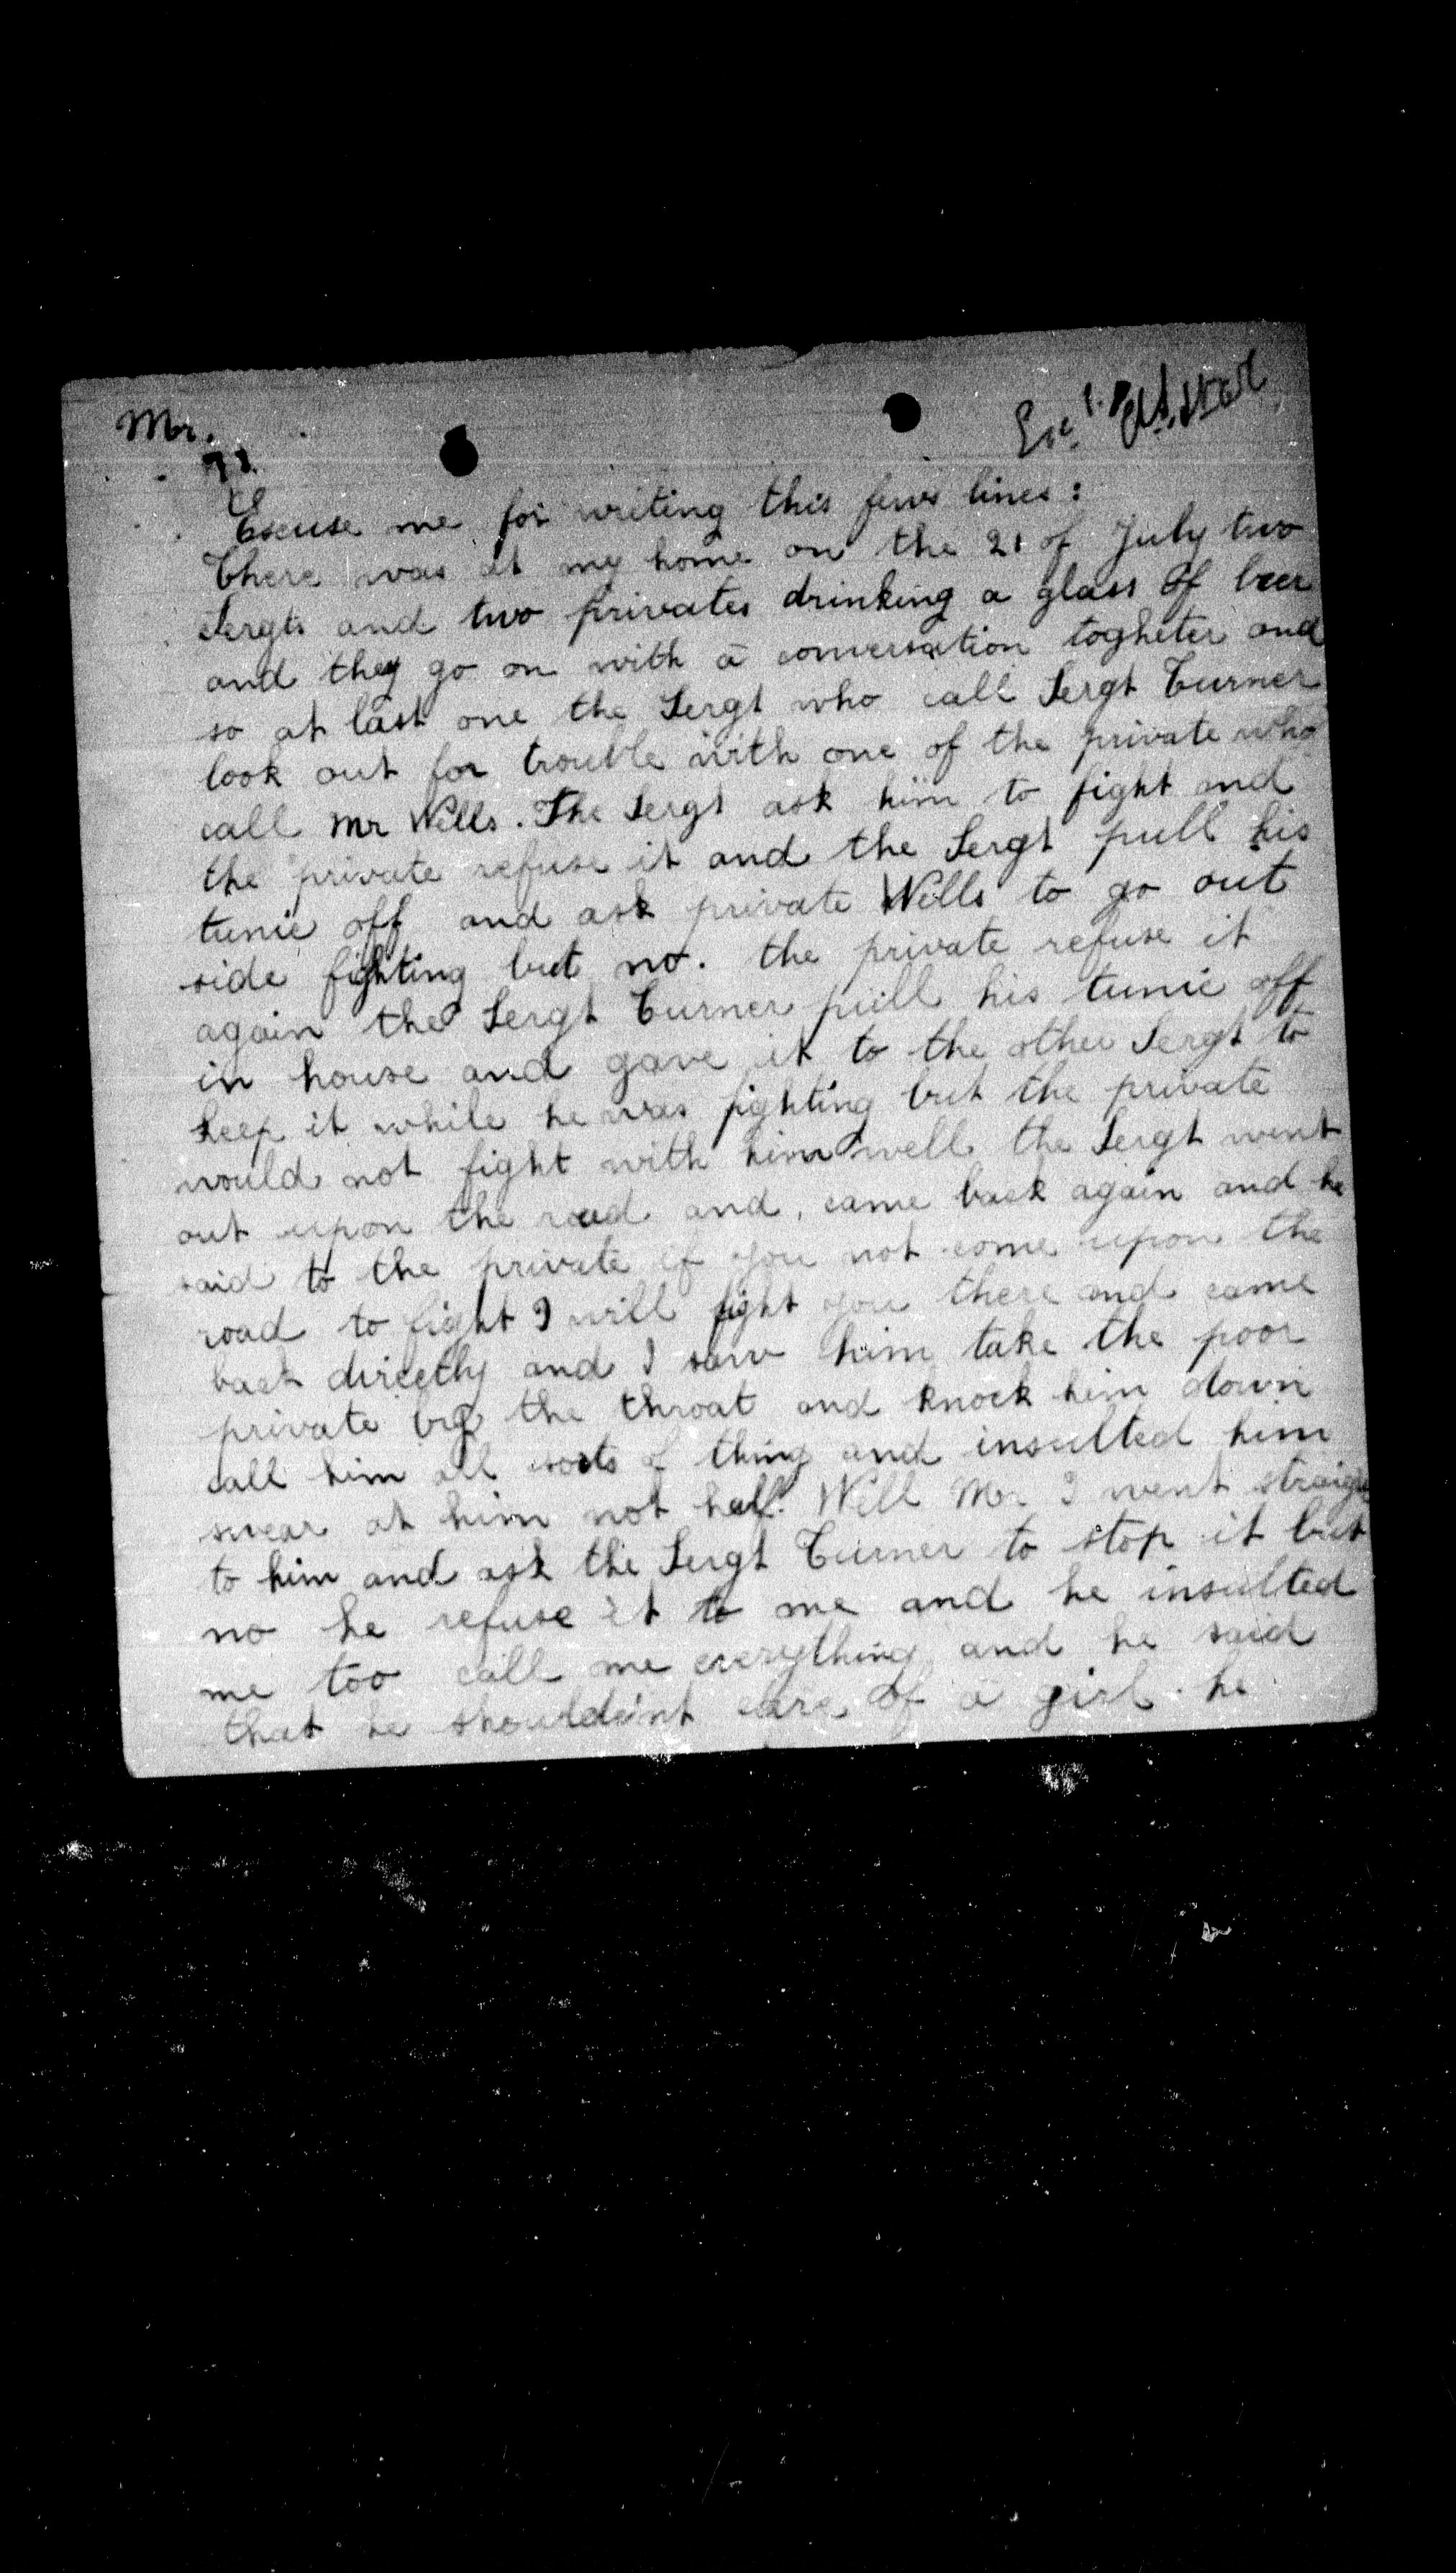 Mr.
Escuse me for writing this fews lines:
There was at my home on the 21 of July two
Sergts and two privates drinking a glass of beer
and they go on with a conversation togheter and
so at last one the Sergt who call Sergt Turner
look out for trouble with one of the private who
call Mr Wells. The Sergt ask him to fight and
the private refuse it and the Sergt pull his
tunic off and ask private Wells to go out
side fighting but no. the private refuse it
again the Sergt Turner pull his tunic off
in house and gave it to the other Sergt to
keep it while he was fighting but the private
would not fight with him well the Sergt went
out upon the road and, came back again and he
said to the private if you not come upon the
road to fight I will fight you there and came
back directly and I saw him take the poor
private by the throat and knock him down
call him all sorts of thing and insulted him
swear at him not half. Well Mr I went straight
to him and ask the Sergt Turner to stop it but
no he refuse it to me and he insulted
me too call me everything and he said
that he shouldeint care of a girl. he